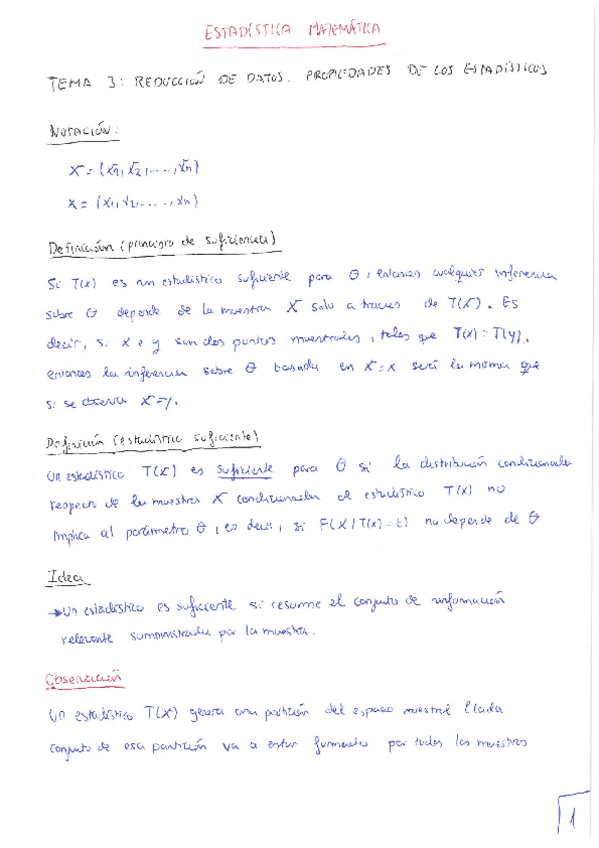 ESTADÍSTICA MATEMÁTICA
TEMA 3: REDUCCIÓN DE DATOS. PROPIEDADES DE LOS ESTADÍSTICOS
NOTACIÓN:
X = (X1, X2, ...., Xn)
x = (x1, x2, ...., xn)
Definición (principio de suficiencia)
Si T(x) es un estadístico suficiente para θ, entonces cualquier inferencia
sobre θ depende de la muestra X solo a traves de T(X). Es
decir, si x e y son dos puntos muestrales, tales que T(x) = T(y),
entonces la inferencia sobre θ basada en X=x será la misma que
si se observa X=y.
Definición (estadístico suficiente)
Un estadístico T(X) es suficiente para θ si la distribución condicionada
respecto de la muestra X condicionada al estadístico T(X) no
implica al parámetro θ, es decir, si F(X/T(x)=t) no depende de θ
Idea
→ Un estadístico es suficiente si resume el conjunto de información
relevante suministrada por la muestra.
Observación
Un estadístico T(X) genera una partición del espacio muestral
conjunto de esa partición va a estar formado por todas las muestras
1